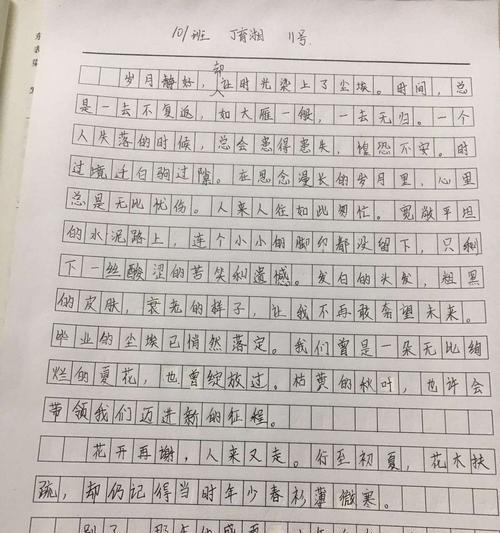 101班 丁育湘 11号
却
岁月静好，人让时光染上了尘埃。时间，总
是一去不复返，如大雁一般，一去无归。一个
人失落的时候，总会患得患失，惶恐不安。时
过境迁白驹过隙。在思念漫长的岁月里，心里
总是无比忧伤。人来人往如此匆忙。宽敞平坦
的水泥路上，连个小小的脚印都没留下，只剩
下一丝酸涩的苦笑和遗憾。发白的头发，粗黑
的皮肤，衰老的样子，让我不再敢希望未来。
毕业的尘埃已悄然落定。我们曾是一朵无比绚
烂的夏花，也曾绽放过。枯黄的秋叶，也许会
带领我们迈进新的征程。
花开再谢，人来又走。行至初夏，花木扶
疏，却仍记得当时年少春衫薄微寒。
别了，那年